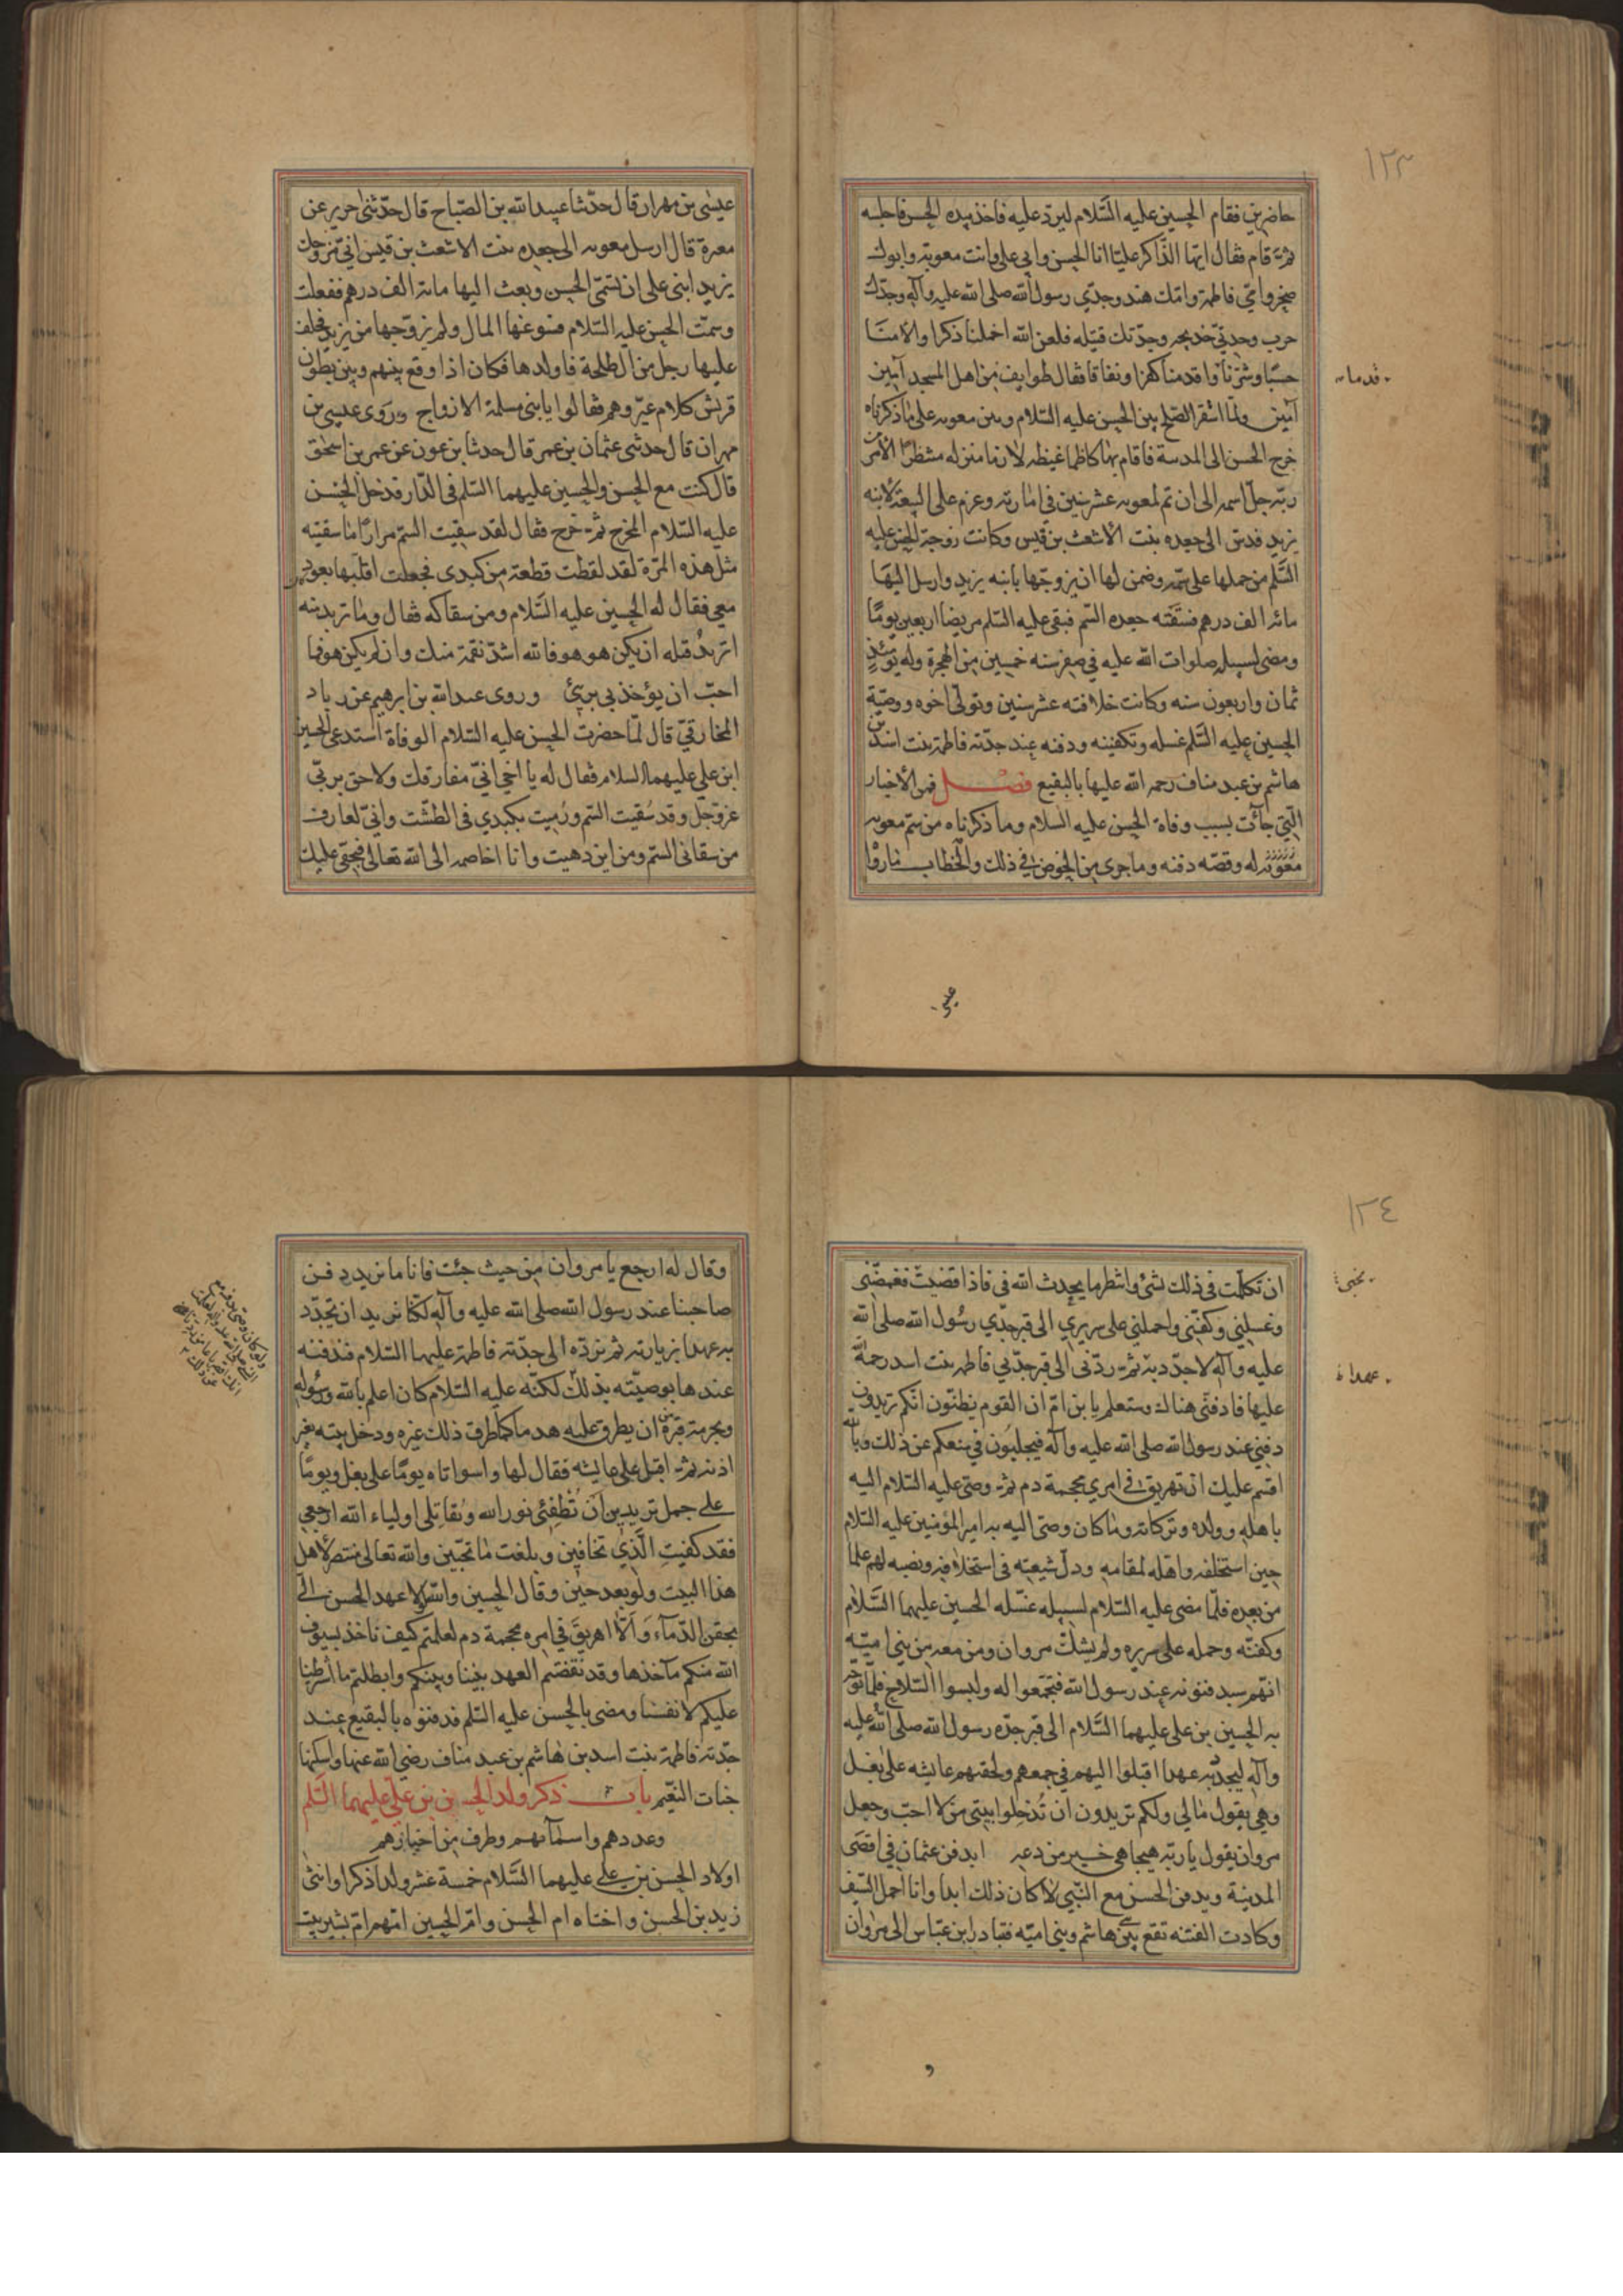 ١٢٣
حاضرين فقام الحسين عليه السَّلام ليرد عليه فاخذ بيده الحسن فاجلسه
ثمّ قام فقال ايّها الذّاكر عليّا انا الحسن وابي علي وانت معوية وابوك
صخر وامّي فاطمة وامّك هند وجدّي رسول الله صلى الله عليه وآله وجدّك
حرب وجدتي خديجه وجدّتك قتيله فلعن الله اخملنا ذكرا والامنا
حسبًا وشرّنا قدما واقدمنا كفرا ونفاقا فقال طوايف من اهل المسجد آمين
قدما
آمين ولمّا استقر الصّلح بين الحسن عليه السّلام وبين معويه على ما ذكرناه
خرج الحسن الى المدينة فاقام بها كاظما غيظه لازما منزله منتظرًا لأمر
ربّه جلّ اسمه الى ان تم لمعويه عشر سنين في امارته وعزم على البيعة لابنه
يزيد فدسّ الى جعده بنت الاشعث بن قيس وكانت زوجة الحسن عليه
السَّلم من حملها على سمّه وضمن لها ان يزوجها بابنه يزيد وارسل اليها
مائه الف درهم فسقته جعده السّم فبقى عليه السّلم مريضا اربعين يومًا
ومضى لسبيله صلوات الله عليه في صفر سنه خمسين من الهجرة وله يومئذٍ
ثمان واربعون سنه وكانت خلافته عشر سنين وتولّى اخوه ووصيّه
الحسين عليه السَّلم غسله وتكفينه ودفنه عند جدّته فاطمة بنت اسد بن
هاشم بن عبد مناف رحمه الله عليها بالبقيع فصل فمن الأخبار
الّتي جاءت بسبب وفاة الحسن عليه السلام وما ذكرناه من سم معويه
له وقصّه دفنه وما جرى من الخوض في ذلك والخطاب ما رواه
عيسى
عيسٰى بن مهران قال حدّثنا عبيد الله بن الصّباح قال حدّثني جرير عن
مغيرة قال ارسل معويه الى جعده بنت الاشعث بن قيس انّي مزوجك
يزيد ابنى على ان تسمّى الحسن وبعث اليها مائة الف درهم ففعلت
وسمّت الحسن عليه السّلام فسوغها المال ولم يزوّجها من يزيد فخلف
عليها رجل من آل طلحة فاولدها فكان اذا وقع بينهم وبين بطون
قريش كلام عيّروهم فقالوا يا بني مسمة الازواج وروى عيسى بن
مهران قال حدثنى عثمان بن عمر قال حدثنا بن عون عن عمر بن اسحق
قال كنت مع الحسن والحسين عليهما السّلم فى الدّار فدخل الحسن
عليه السّلام المخرج ثمّ خرج فقال لقد سقيت السّم مرارًا ما سقيته
مثل هذه المرّة لقد لفظت قطعة من كبدى فجعلت اقلّبها بعود
معي فقال له الحسين عليه السَّلام ومن سقاكه فقال وما تريد منه
اتريد قتله ان يكن هو هو فالله اشدّ نقمة منك وان لم يكن هو فما
احبّ ان يؤخذ بي برئ وروى عبد الله بن ابرهيم عن زياد
المخارقيّ قال لمّا حضرت الحسن عليه السّلام الوفاة استدعى الحسين
ابن علي عليهما السلام فقال له يا اخي انّي مفارقك ولاحق بربّي
عزّ وجلّ وقد سُقيت السّم ورُميت بكبدي في الطّشت وانّي لعارف
من سقانى السّم ومن اين دهيت وانا اخاصمه الى الله تعالى فبحقّي عليك
١٢٤
ان تكلّمت في ذلك بشئ وانتظر ما يحدث الله فى فاذا قضيت فغمّضني
وغسلني وكفّني واحملني على سريري الى قبر جدّي رسُول الله صلى الله
عليه وآله لاجدّد به ثمّ ردّنى الى قبر جدّتي فاطمه بنت اسد رحمة
عهدا
عليها فادفنّى هناك وستعلم يا بن امّ ان القوم يظنّون انّكم تريدون
دفني عند رسول الله صلى الله عليه وآله فيجلبُون في منعكم عن ذلك وبالله
اقسم عليك ان تهريق في امري محجمة دم ثمّ وصّى عليه السّلام اليه
باهله وولده وتركاته وما كان وصّى اليه به امير المؤمنين عليه السّلام
حين استخلفه واهّله لمقامه ودلّ شيعته فى استخلافه ونصبه لهم علما
من بعده فلمّا مضى عليه السّلام لسبيله غسّله الحسين عليهما السَّلام
وكفّنه وحمله على سريره ولم يشكّ مروان ومن معه من بني اميّة
انهم سيدفنونه عند رسول الله فتجمّعوا له ولبسوا السّلاح فلمّا توجّه
به الحسين بن على عليهما السَّلام الى قبر جدّه رسول الله صلى الله عليه
وآله ليجدّ به عهدا اقبلوا اليهم في جمعهم ولحقتهم عايشه على بغل
وهي يقول ما لي ولكم تريدون ان تُدخِلوا بيتى من لا احبّ وجعل
مروان يقول يا ربّ هيجا هي خير من دعه ايدفن عثمان في اقصى
المدينة ويدفن الحسن مع النّبي لا كان ذلك ابدا وانا احمل السّيف
وكادت الفتنه تقع بين هاشم وبني اميّه فبادر ابن عبّاس الى مروان
و
وقال له ارجع يا مروان من حيث جئت فانا ما نريد دفن
صاحبنا عند رسول الله صلى الله عليه وآله لكنّا نريد ان نجدّد
به عهدا بزيارته ثم نردّه الى جدّته فاطمة عليها السّلام فندفنه
عندها بوصيّته بذلك لكنّه عليه السّلام كان اعلم بالله ورسُوله
وبحرمة قبره من ان يطرق عليه هدما كما طرق ذلك غيره ودخل بيته بغير
اذنه ثمّ اقبل على عايشه فقال لها واسواتاه يومًا على بغل ويومًا
على جمل تريدين اَن تُطفئي نور الله وتُقاتلى اولياء الله ارجعي
فقد كفيتِ الَّذي تخافين وبلغت ما تحبّين والله تعالى منتصر لأهل
هذا البيت ولو بعد حين وقال الحسين والله لولا عهد الحسن الىّ
بحقن الدّمآء وَالّا اهريق في امره محجمة دم لعلمتم كيف تاخذ سيوف
الله منكم مآخذها وقد نقضتم العهد بيننا وبينكم وابطلتم ما اشرطنا
عليكم لانفسنا ومضى بالحسن عليه السّلم فدفنوه بالبقيع عند
جدّته فاطمة بنت اسد بن هاشم بن عبد مناف رضي الله عنها واسكنها
جنات النّعيم باب ذكر ولد الحسن بن علي عليهما السَّلم
وعددهم واسمآئهم وطرف من اخبارهم
اولاد الحسن بن على عليهما السَّلام خمسة عشر ولدا ذكرا وانثى
زيد بن الحسن واختاه ام الحسن وامّ الحسين امّهم امّ بشير بنت